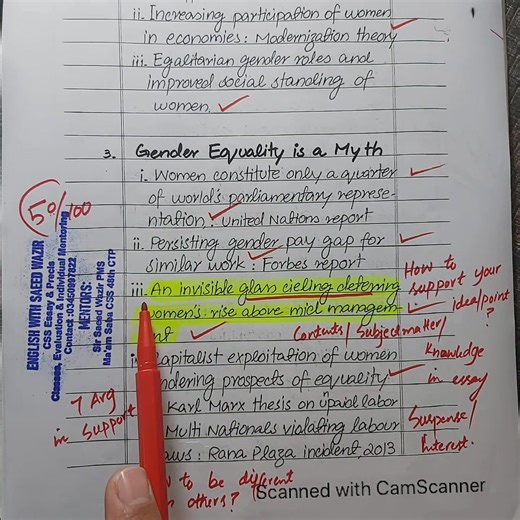 ii. Increasing participation of women
in economies : Modernization theory
iii. Egalitarian gender roles and
improved social standing of
women.
3. Gender Equality is a Myth
i. Women constitute only a quarter
of world's parliamentary represe-
ntation. : United Nations report
ii. Persisting gender pay gap for
similar work : Forbes report
iii. An invisible glan cieling deterring
women's rise above mid managem-
ent
Capitalist exploitation of women
ndering prospects of equality
Karl Marx thesis on upaid labor
Multi Nationals violating labour
aws : Rana Plaza incident, 2013
50/100
ENGLISH WITH SAEED WAZIR
CSS Essay & Precis
Classes, Evaluation & Individual Mentoring
MENTORS:
Sir Saeed Wazir PMS
Ma'am Saba CSS 48th CTP
How to
support your
idea/point
?
Contents/Subject matter/
Knowledge
in essay
7 Arg
in support
Suspense/
Interest.
to be different
others?
Scanned with CamScanner